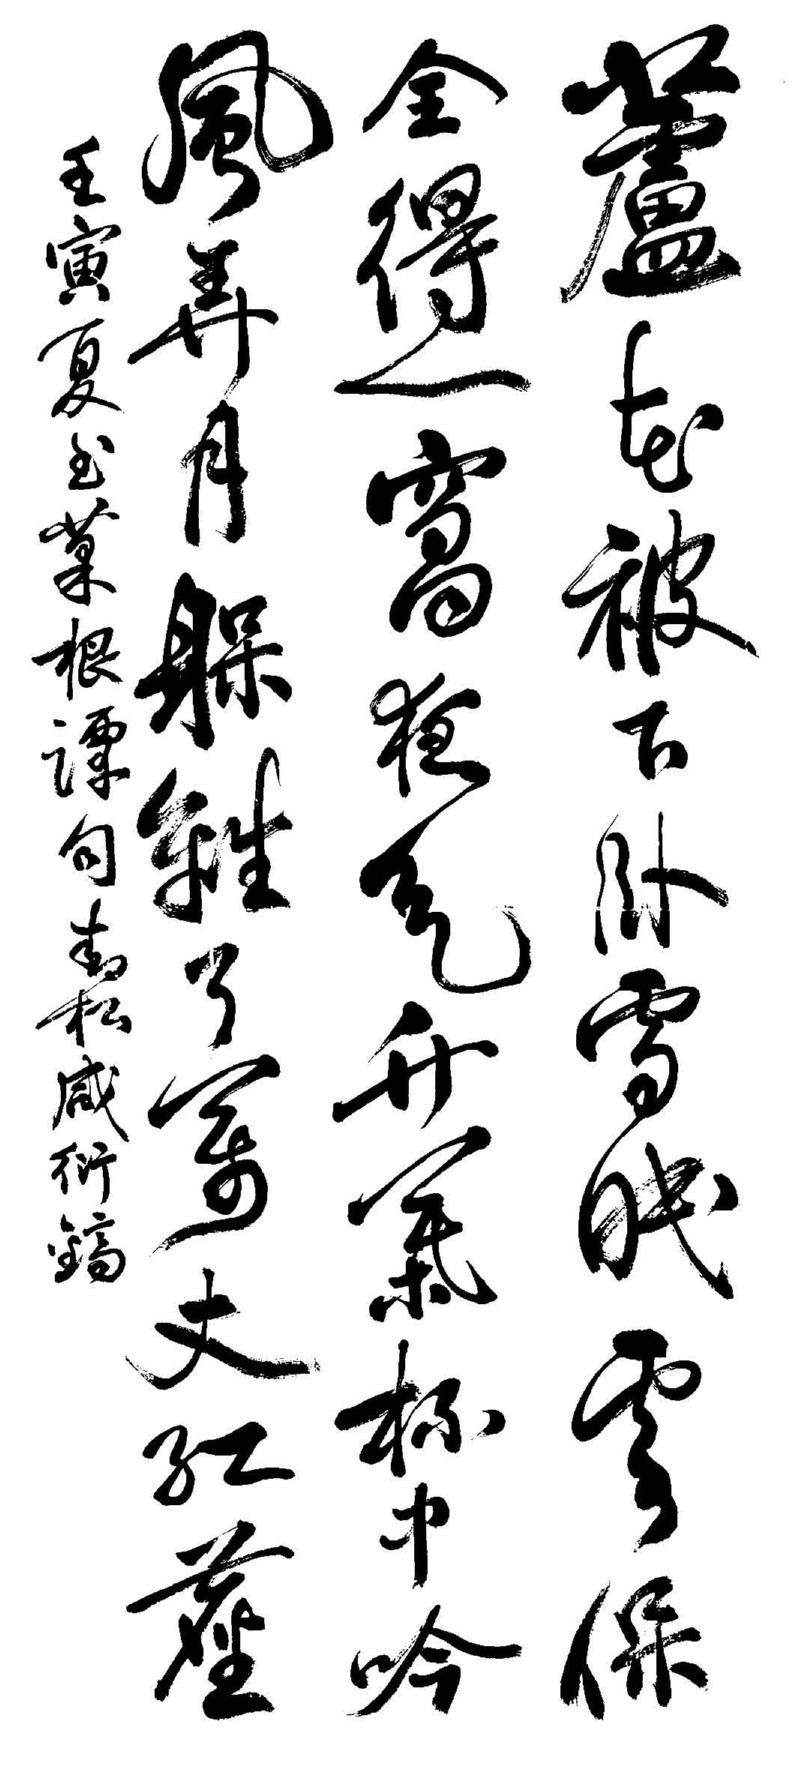 蘆花被下卧雪眠雲保
全得一窩夜气竹葉杯中吟
風弄月躲離了萬丈紅塵
壬寅夏书菜根譚句青松咸衍鎬